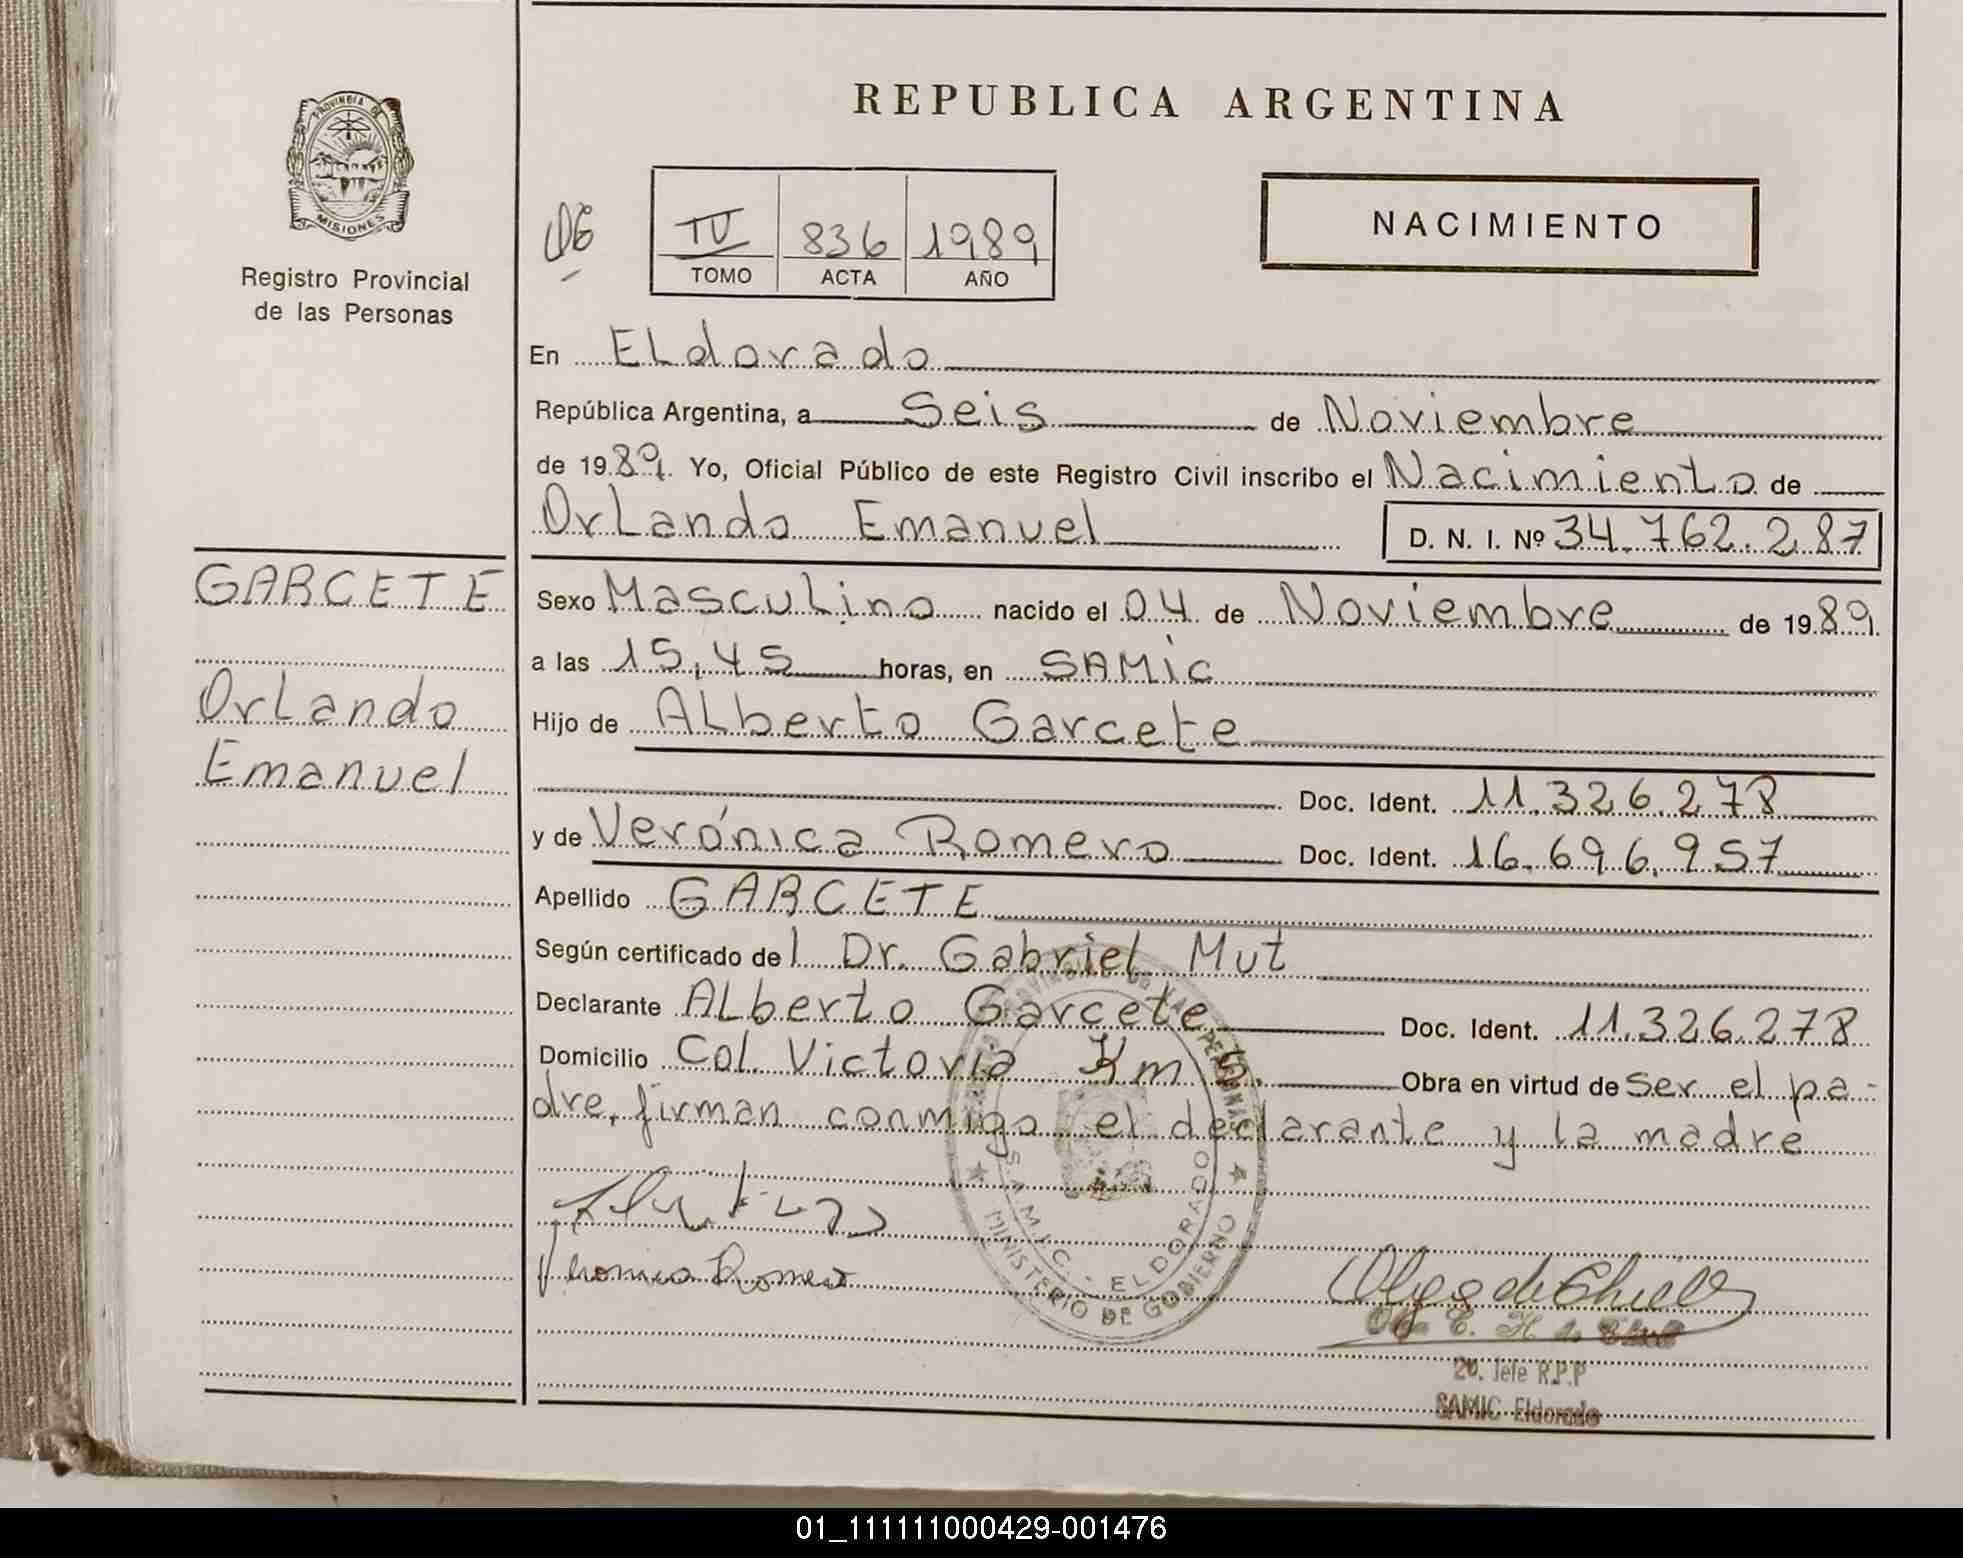 PROVINCIA DE
MISIONES
Registro Provincial
de las Personas
REPUBLICA ARGENTINA
NACIMIENTO
IV 836 1989
TOMO ACTA AÑO
En Eldorado
República Argentina, a Seis de Noviembre
de 1989. Yo, Oficial Público de este Registro Civil inscribo el Nacimiento de
Orlando Emanuel D. N. I. Nº 34.762.287
GARCETE
Orlando
Emanuel
Sexo Masculino nacido el 04 de Noviembre de 1989
a las 15,45 horas, en SAMIC
Hijo de Alberto Garcete
Doc. Ident. 11.326.278
y de Verónica Romero Doc. Ident. 16.696.957
Apellido GARCETE
Según certificado del Dr. Gabriel Mut
Declarante Alberto Garcete Doc. Ident. 11.326.278
Domicilio Col. Victoria Km Obra en virtud de ser el pa-
dre, firman conmigo el declarante y la madre
Veronica Romero
S.A.M.I.C. - ELDORADO
MINISTERIO DE GOBIERNO
Olga de
2º. Jefe R.P.P
SAMIC Eldorado
01_111111000429-001476